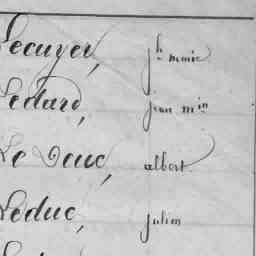 Lecuyer, jh marie
Ledard, jean min
Le Deuc, albert
Leduc, julien